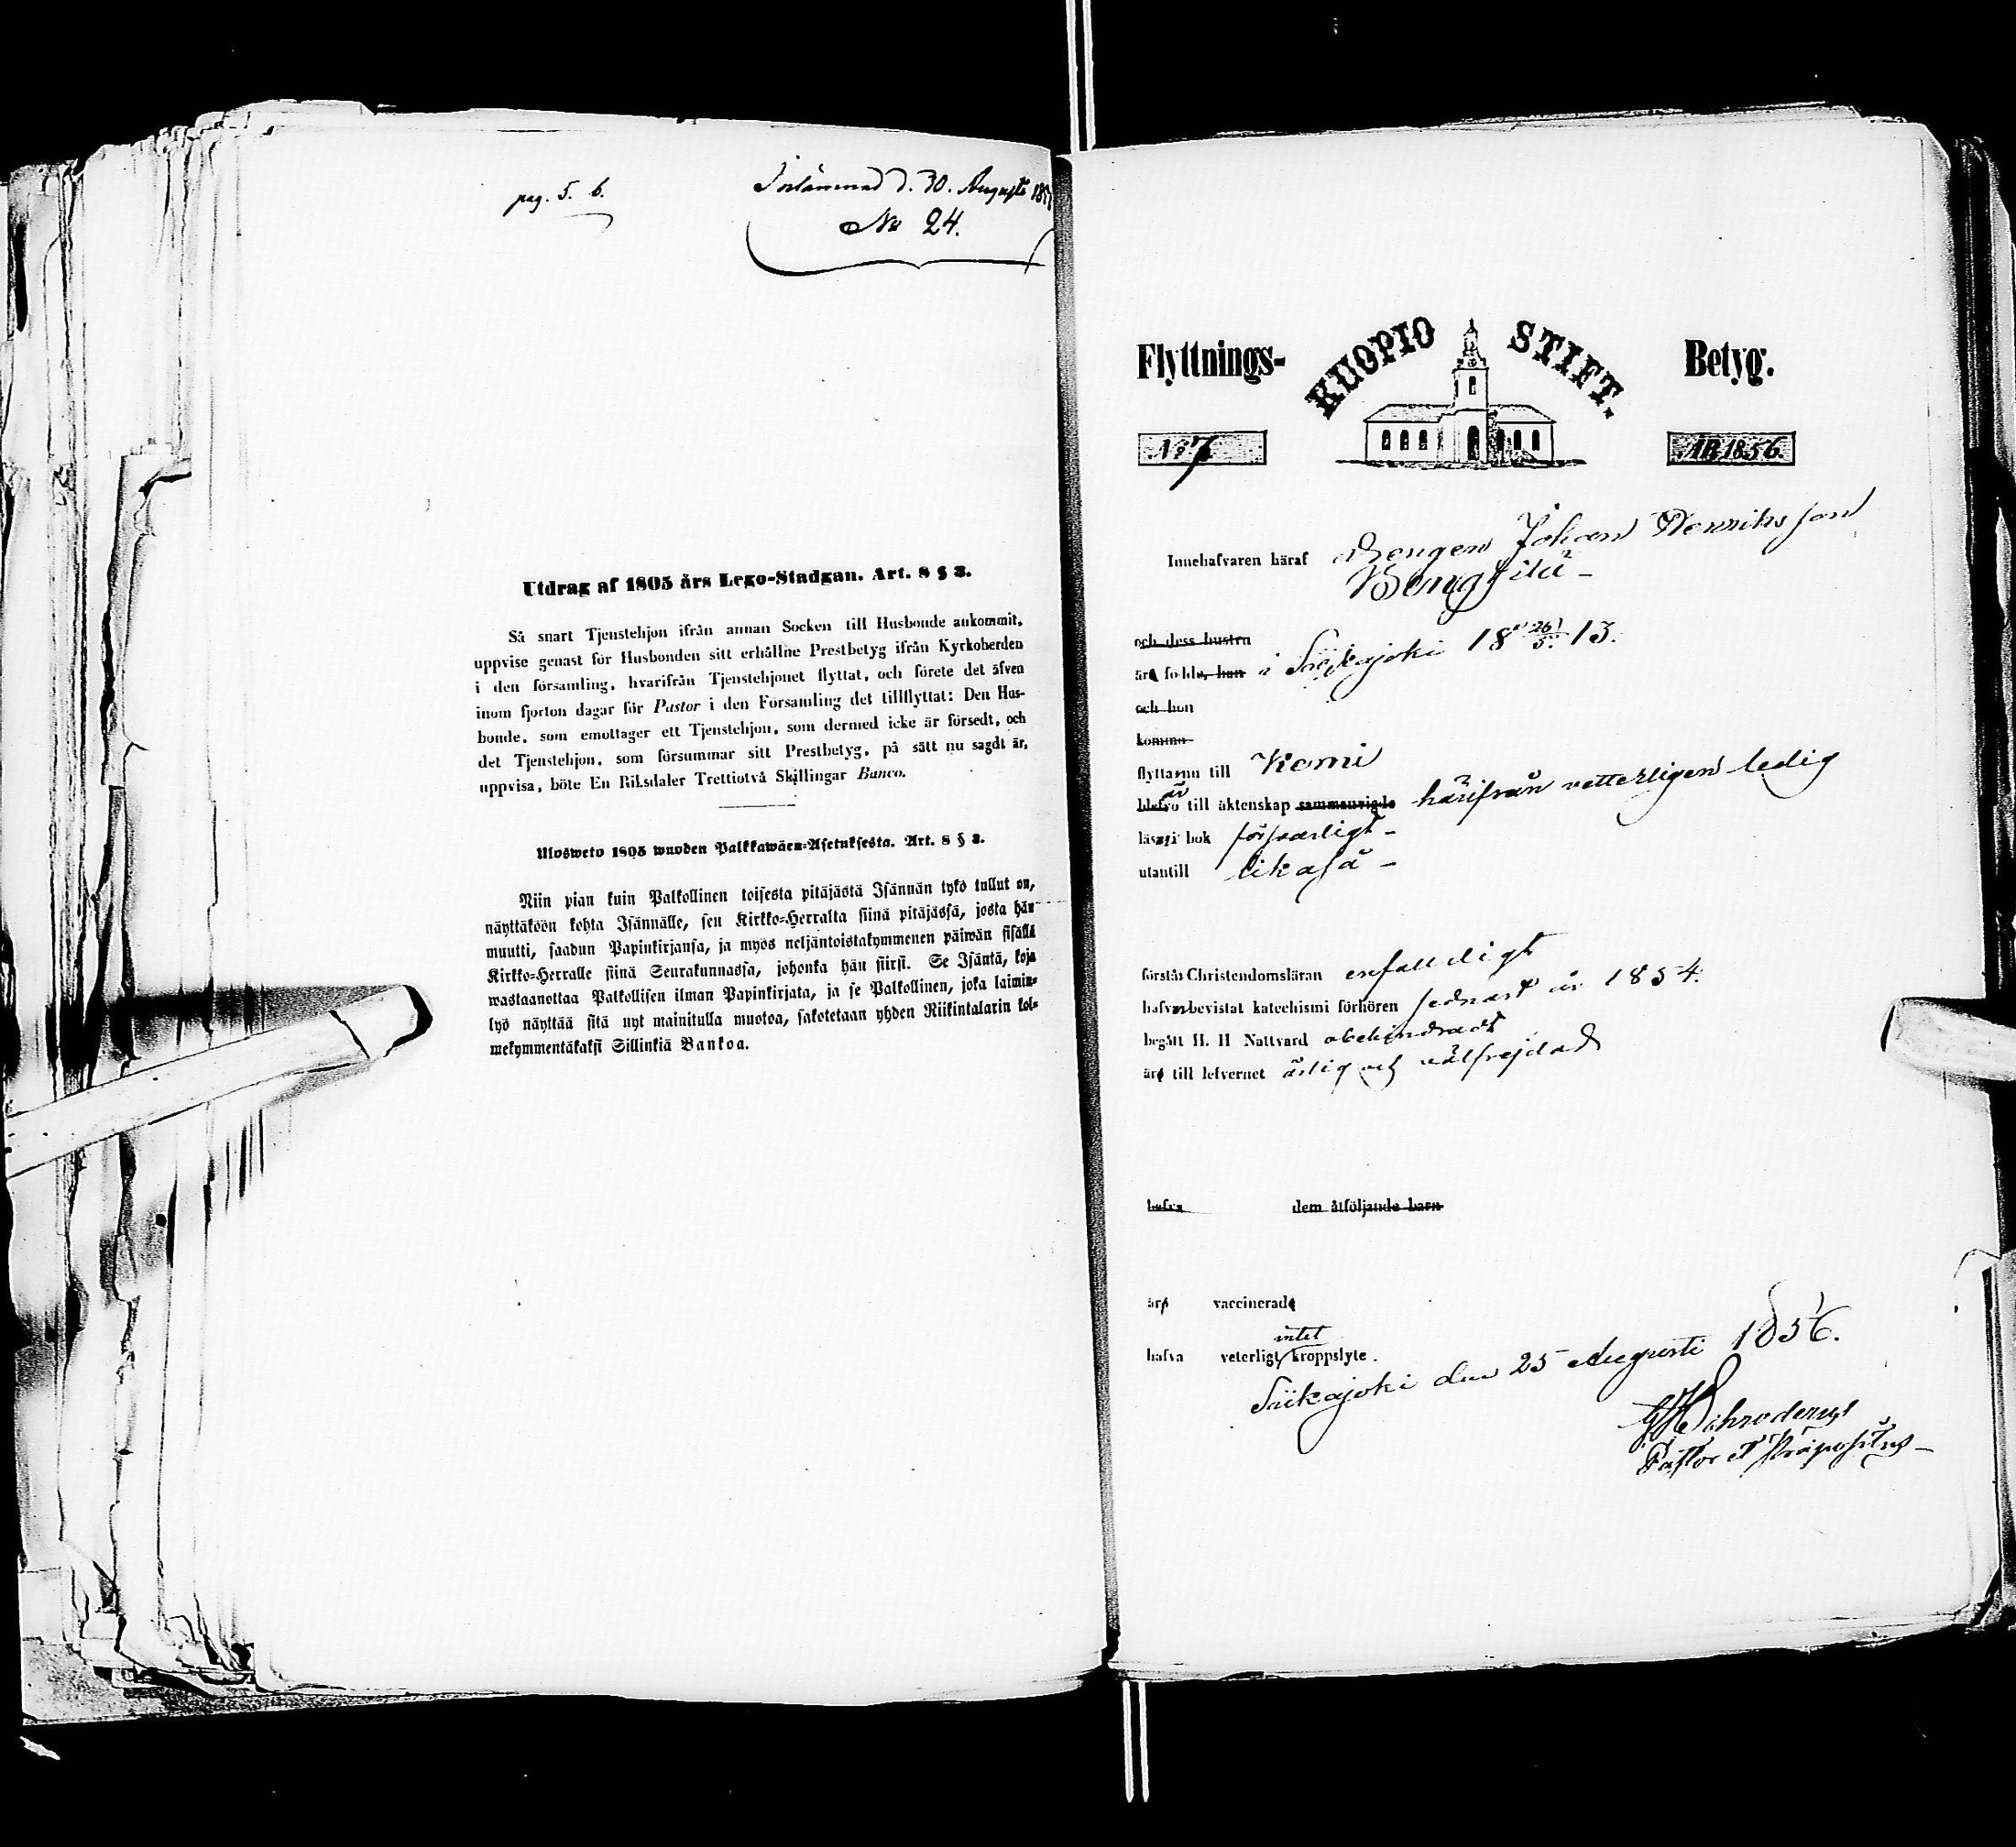 pag. 5. 6.
d. 30. Augusti
No 24.
Utdrag af 1805 års Lego-Stadgan. Art. 8 § 3.
Så snart Tjenstehjon ifrån annan Socken till Husbonde ankommit,
uppvise genast för Husbonden sitt erhållne Prestbetyg ifrån Kyrkoherden
i den församling, hvarifrån Tjenstehjonet flyttat, och förete det äfven
inom fjorton dagar för Pastor i den Församling det tillflyttat: Den Hus-
bonde, som emottager ett Tjenstehjon, som dermed icke är försedt, och
det Tjenstehjon, som försummar sitt Prestbetyg, på sätt nu sagdt är,
uppvisa, böte En Riksdaler Trettiotvå Skillingar Banco.
Ulosweto 1805 wuoden Palkkawäen-Asetuksesta. Art. 8 § 3.
Niin pian kuin Palkollinen toisesta pitäjästä Isännän tykö tullut on,
näyttäköön kohta Isännälle, sen Kirkko-Herralta siinä pitäjässä, josta hän
muutti, saadun Papinkirjansa, ja myös neljäntoistakymmenen päiwän sisällä
Kirkko-Herralle siinä Seurakunnassa, johonka hän siirsi. Se Isäntä, koja
wastaanottaa Palkollisen ilman Papinkirjata, ja se Palkollinen, joka laimin-
lyö näyttää sitä nyt mainitulla muotoa, sakotetaan yhden Riikintalarin kol-
mekymmentäkaksi Sillinkiä Bankoa.
Flyttnings- KUOPIO STIFT. Betyg.
No 7 AB 1856.
Innehafvaren häraf Drengen Johan Henriksson
och dess hustru
äro födde, han i Siikajoki 18 26/5 13.
och hon
komma
flytta nu till Kemi
blefvo är till äktenskap sammanvigde härifrån vetterligen ledig
läsa i bok försvarligt –
utantill likaså –
förstår Christendomsläran enfaldigt
hafva bevistat katechismi förhören sednast år 1854.
begått H. H Nattvard obehindradt
äro till lefvernet ärlig och välfrejdad
hafva dem åtföljande barn
äro vaccinerade
intet
hafva veterligt kroppslyte.
Siikajoki den 25 Augusti 1856.
Schroderus
Pastor et Præpositus –